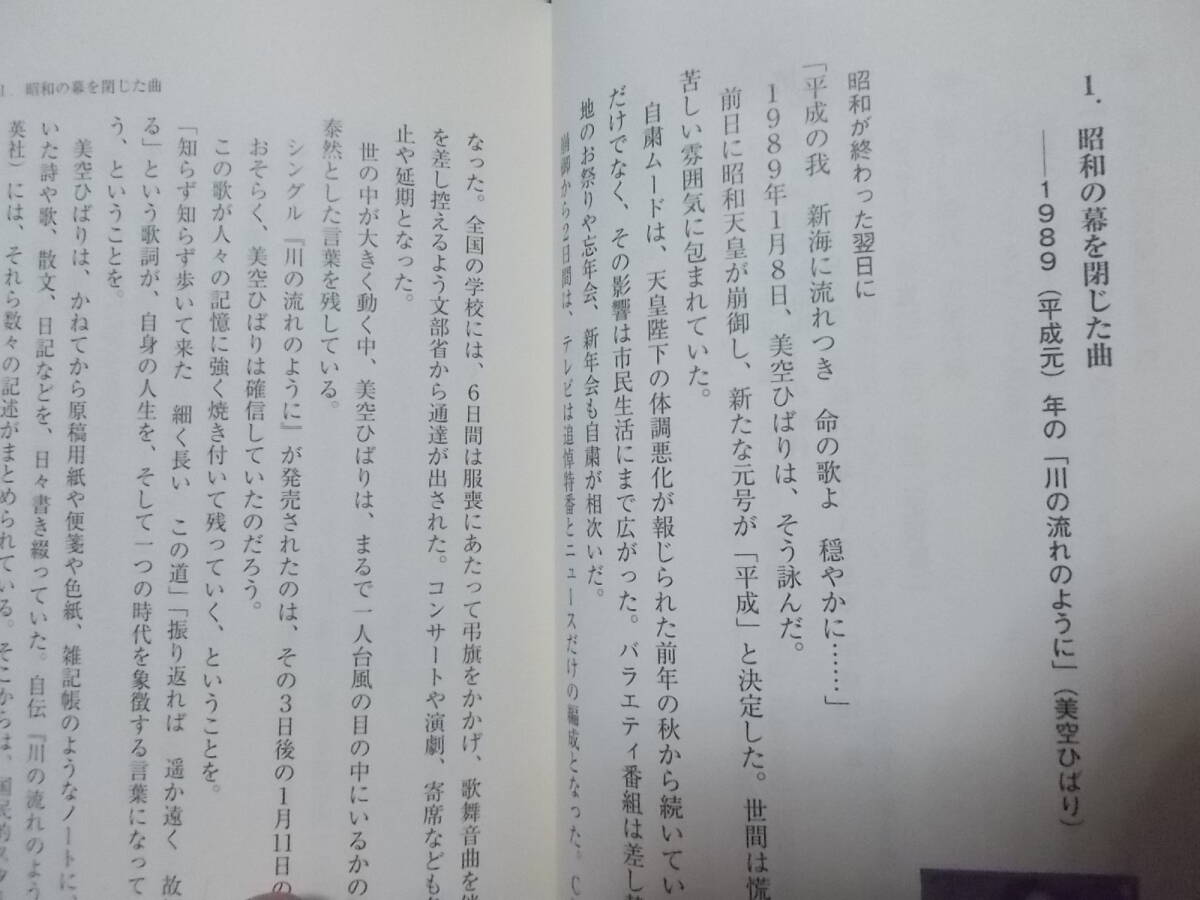 1. 昭和の幕を閉じた曲
――1989（平成元）年の「川の流れのように」（美空ひばり）
昭和が終わった翌日に
「平成の我　新海に流れつき　命の歌よ　穏やかに……」
1989年1月8日、美空ひばりは、そう詠んだ。
前日に昭和天皇が崩御し、新たな元号が「平成」と決定した。世間は慌
苦しい雰囲気に包まれていた。
自粛ムードは、天皇陛下の体調悪化が報じられた前年の秋から続いてい
だけでなく、その影響は市民生活にまで広がった。バラエティ番組は差し
地のお祭りや忘年会、新年会も自粛が相次いだ。
崩御から2日間は、テレビは追悼特番とニュースだけの編成となった。C
1. 昭和の幕を閉じた曲
なった。全国の学校には、6日間は服喪にあたって弔旗をかかげ、歌舞音曲を
を差し控えるよう文部省から通達が出された。コンサートや演劇、寄席なども
止や延期となった。
世の中が大きく動く中、美空ひばりは、まるで一人台風の目の中にいるかの
泰然とした言葉を残している。
シングル『川の流れのように』が発売されたのは、その3日後の1月11日の
おそらく、美空ひばりは確信していたのだろう。
この歌が人々の記憶に強く焼き付いて残っていく、ということを。
「知らず知らず歩いて来た　細く長い　この道」「振り返れば　遥か遠く　故
る」という歌詞が、自身の人生を、そして一つの時代を象徴する言葉になって
う、ということを。
美空ひばりは、かねてから原稿用紙や便箋や色紙、雑記帳のようなノートに、
いた詩や歌、散文、日記などを、日々書き綴っていた。自伝『川の流れのよう
英社）には、それら数々の記述がまとめられている。そこからは、国民的スタ